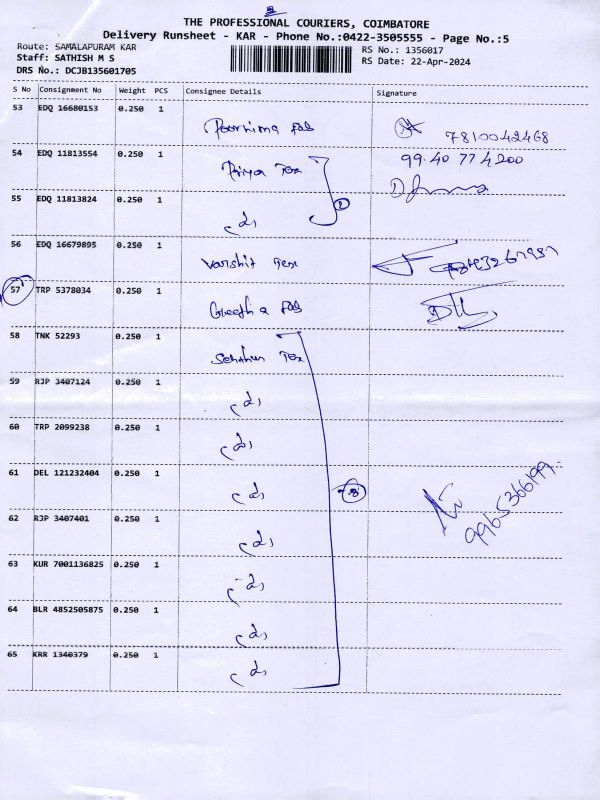 THE PROFESSIONAL COURIERS, COIMBATORE
Delivery Runsheet - KAR - Phone No.:0422-3505555 - Page No.:5
Route: SAMALAPURAM KAR
Staff: SATHISH M S
DRS No.: DCJB135601705
RS No.: 1356017
RS Date: 22-Apr-2024
S No Consignment No Weight PCS Consignee Details Signature
53 EDQ 16680153 0.250 1
Poornima Fab 7810042468
54 EDQ 11813554 0.250 1 99 40 77 4200
Priya Tex
55 EDQ 11813824 0.250 1
2
56 EDQ 16679895 0.250 1
Varshit Tex
57 TRP 5378034 0.250 1
Geetha Fab
58 TNK 52293 0.250 1
Tex
59 RJP 3407124 0.250 1
60 TRP 2099238 0.250 1
61 DEL 121232404 0.250 1
8
9965366199
62 RJP 3407401 0.250 1
63 KUR 7001136825 0.250 1
64 BLR 4852505875 0.250 1
65 KRR 1340379 0.250 1